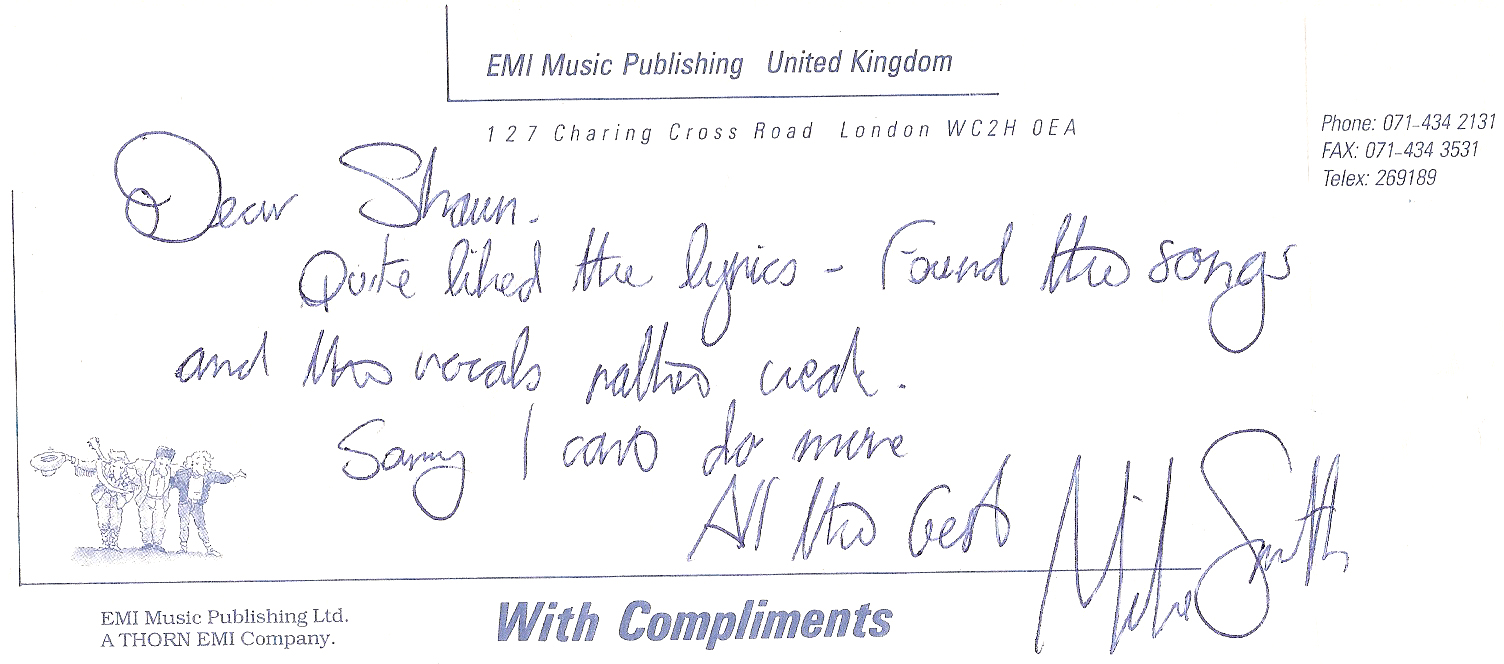 EMI Music Publishing United Kingdom
127 Charing Cross Road London WC2H 0EA
Phone: 071-434 2131
FAX: 071-434 3531
Telex: 269189
Dear Shaun.
Quite liked the lyrics - Found the songs
and the vocals rather weak.
Sorry I cant do more
All the best Mike Smith
EMI Music Publishing Ltd.
A THORN EMI Company.
With Compliments